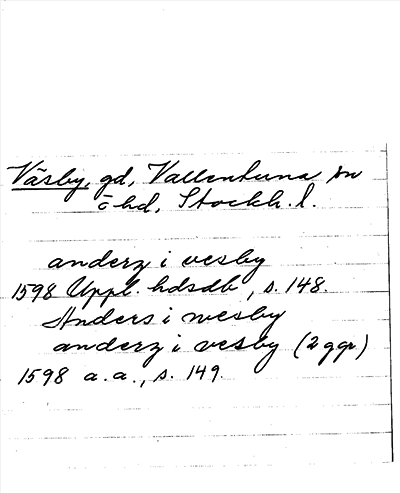 Väsby, gd, Vallentuna sn
o hd, Stockh. l.
anderz i vesby
1598 Uppl. hdsdb, s. 148.
Anders i wesby
anderz i vesby (2 ggr)
1598 a.a., s. 149.